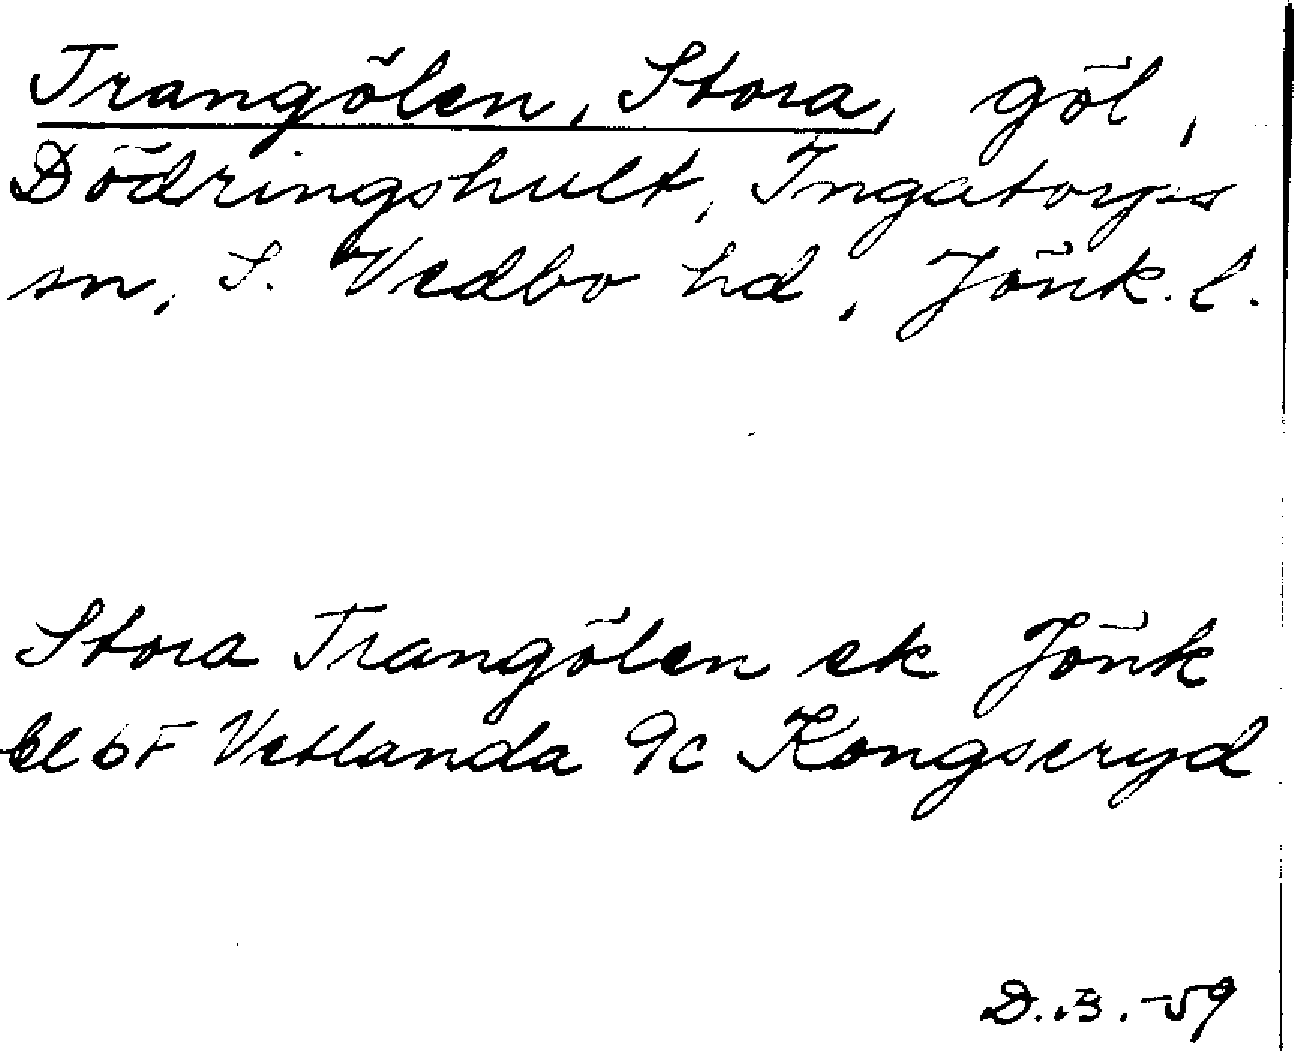 Trangölen, Stora, göl,
Dödringshult, Ingatorps
sn, S. Vedbo hd, Jönk. l.
Stora Trangölen ek Jönk
bl 6F Vetlanda 9c Kongseryd
D.B.-59